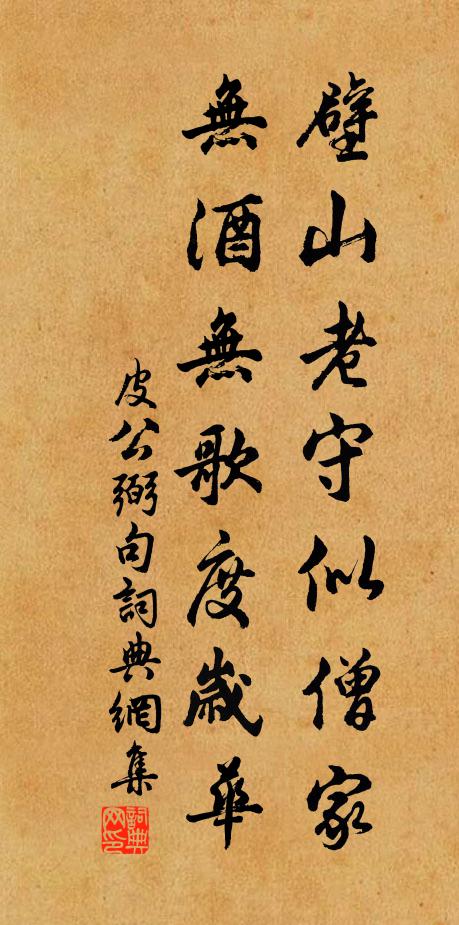 壁山老守似僧家
無酒無歌度歲華
皮公弼句詞典網集
詞典网印